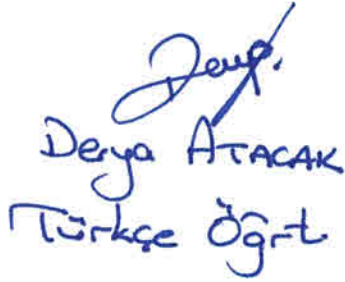 Derya ATACAK
Türkçe Öğrt.